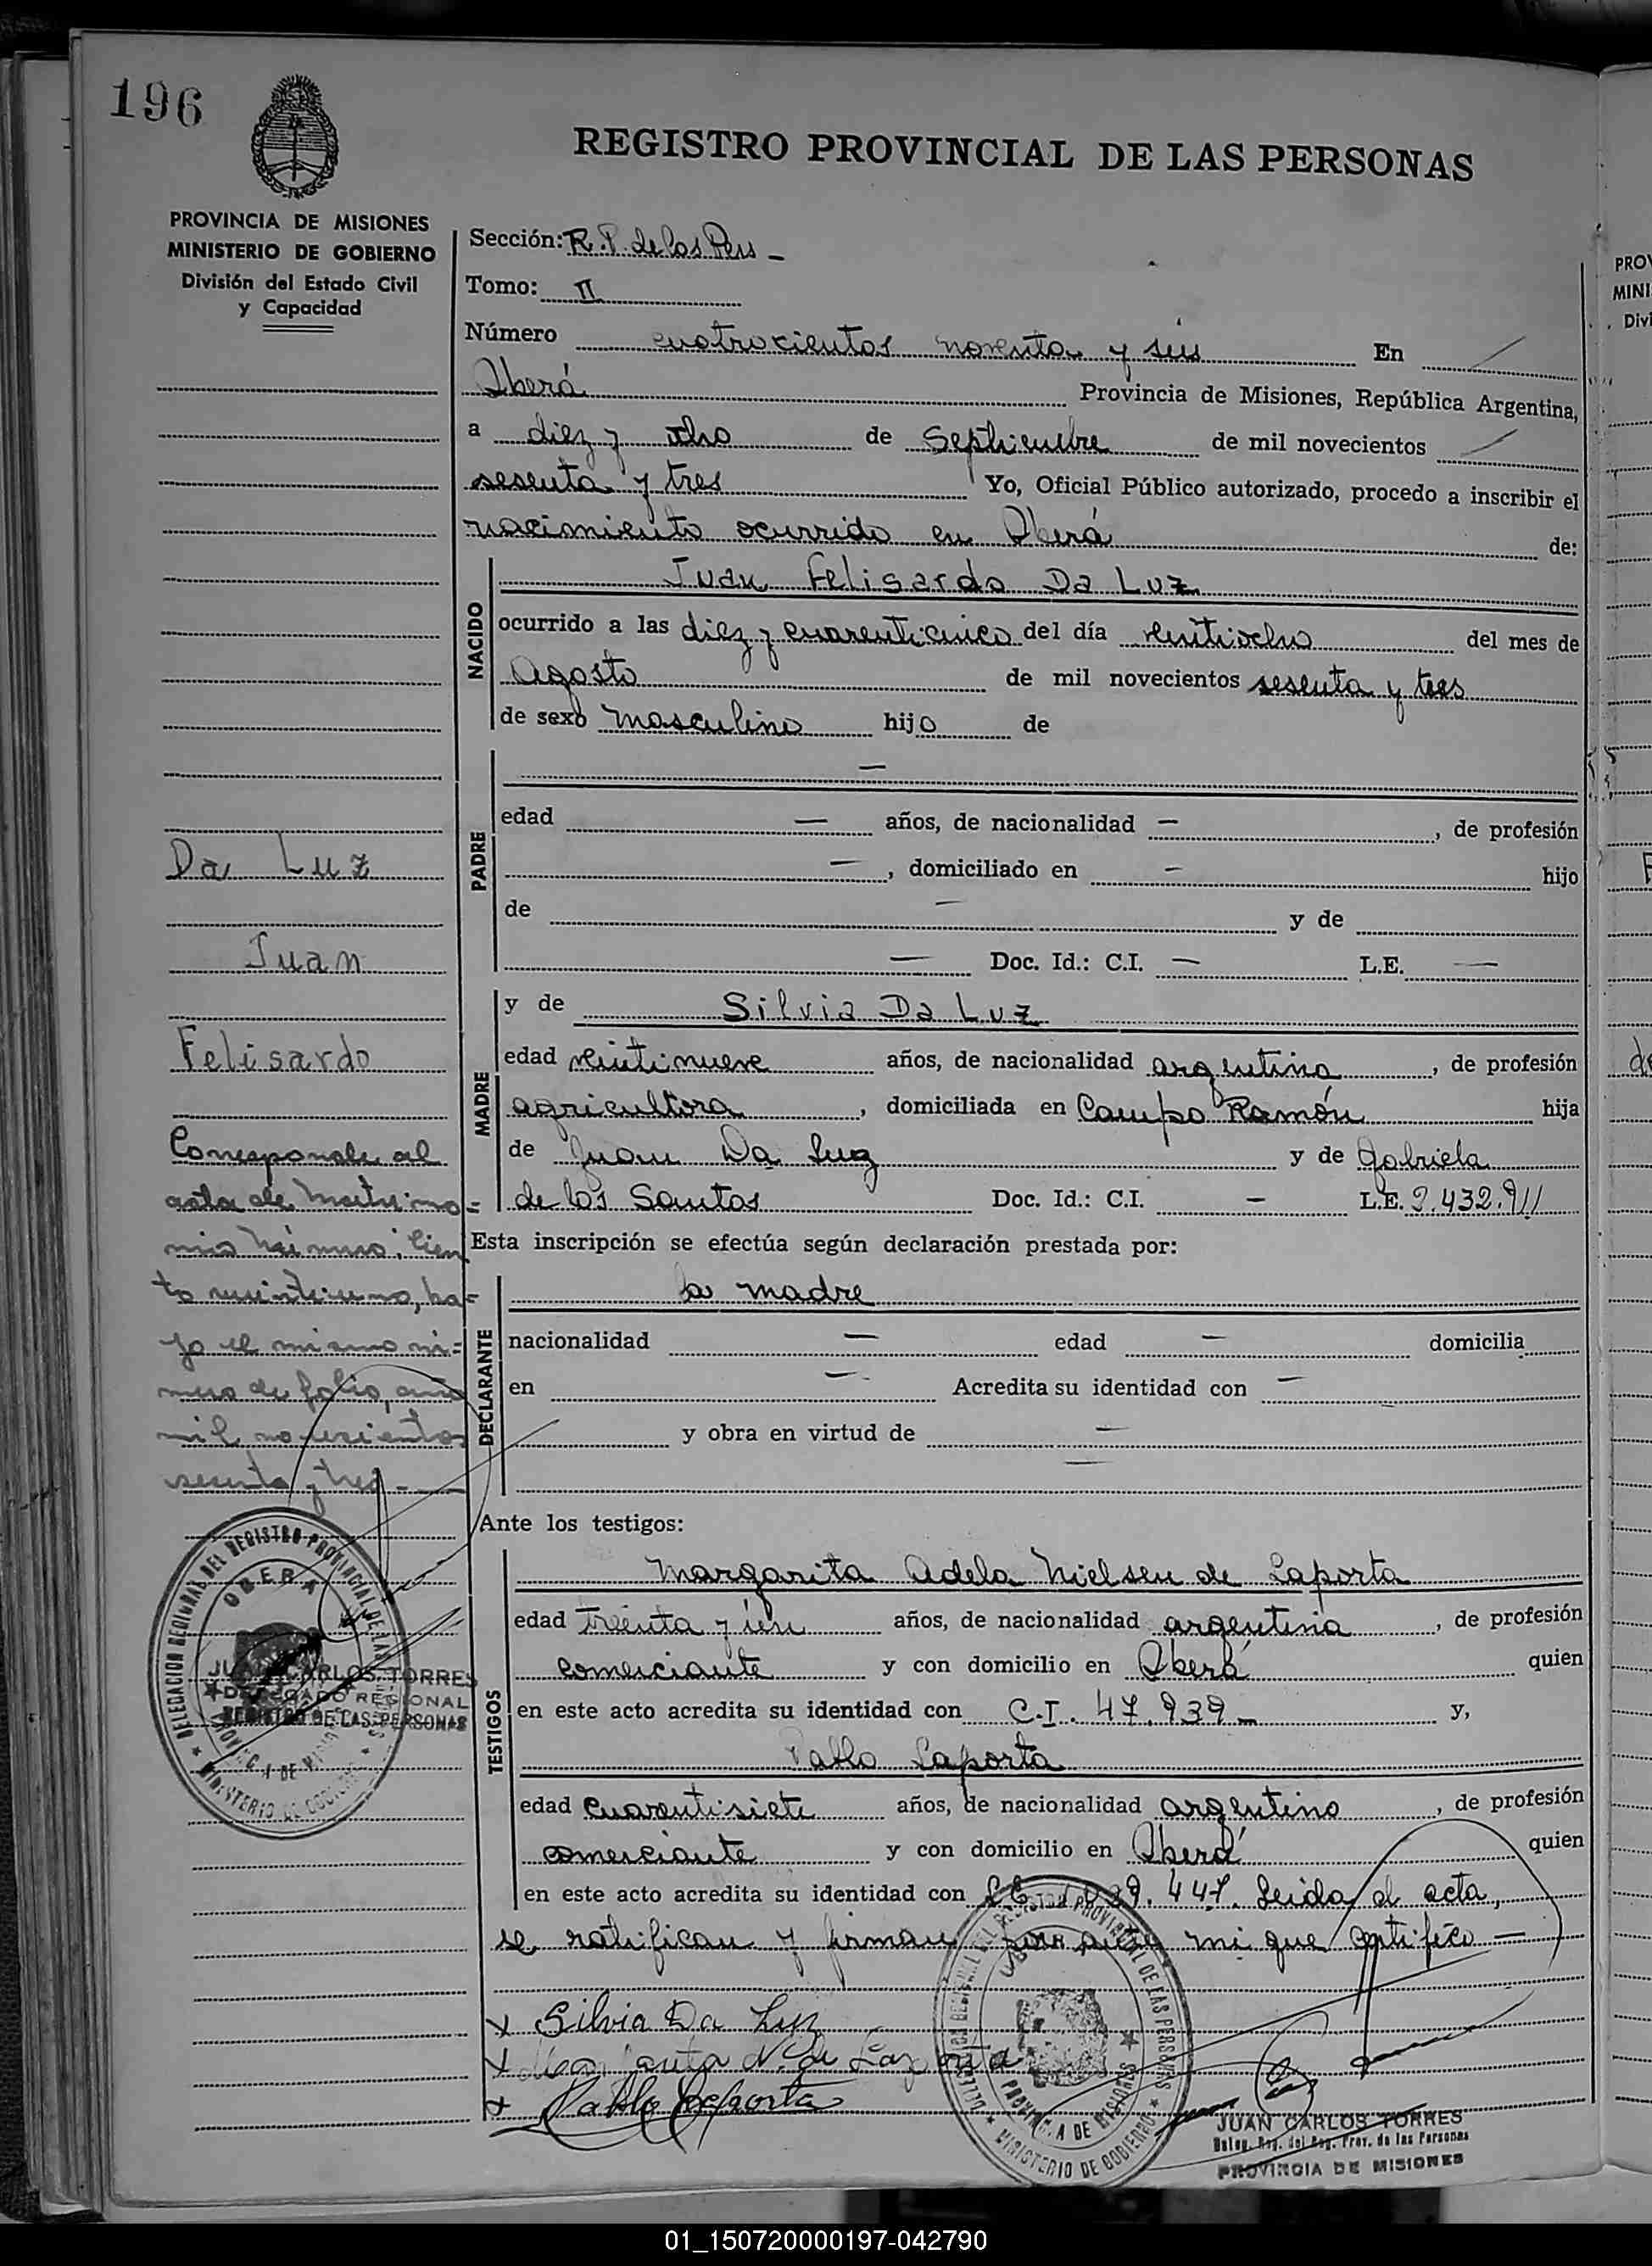 196
REGISTRO PROVINCIAL DE LAS PERSONAS
PROVINCIA DE MISIONES
MINISTERIO DE GOBIERNO
División del Estado Civil
y Capacidad
Sección: R.P. de las Pers -
Tomo: II
Número cuatrocientos noventa y seis En
Oberá Provincia de Misiones, República Argentina,
a diez y ocho de Septiembre de mil novecientos
sesenta y tres Yo, Oficial Público autorizado, procedo a inscribir el
nacimiento ocurrido en Oberá de:
NACIDO
Juan Felisardo Da Luz
ocurrido a las diez y cuarenticinco del día veintiocho del mes de
Agosto de mil novecientos sesenta y tres
de sexo masculino hijo de
PADRE
—
edad — años, de nacionalidad — , de profesión
— , domiciliado en — hijo
de — y de
— Doc. Id.: C.I. — L.E. —
MADRE
y de Silvia Da Luz
edad veintinueve años, de nacionalidad argentina , de profesión
agricultora , domiciliada en Campo Ramón hija
de Juan Da Luz y de Gabriela
de los Santos Doc. Id.: C.I. — L.E. 9.432.911
Esta inscripción se efectúa según declaración prestada por:
DECLARANTE
la madre
nacionalidad — edad — domicilia
en — Acredita su identidad con —
y obra en virtud de —
—
Ante los testigos:
TESTIGOS
Margarita Adela Nielsen de Laporta
edad treinta y un años, de nacionalidad argentina , de profesión
comerciante y con domicilio en Oberá quien
en este acto acredita su identidad con C.I. 47.939 — y,
Pablo Laporta
edad cuarentisiete años, de nacionalidad argentino , de profesión
comerciante y con domicilio en Oberá quien
en este acto acredita su identidad con LE 39.447. Leida el acta,
se ratifican y firman por ante mi que certifico —
x Silvia Da Luz
x Margarita N. de Laporta
x Pablo Laporta
Da Luz
Juan
Felisardo
Corresponde al
acta de matrimo=
nio número, cien
to veintiuno, ba=
jo el mismo nú=
mero de folio, año
mil novecientos
sesenta y tres. —
DELEGACION REGIONAL DEL REGISTRO PROVINCIAL DE LAS PERSONAS
OBERA
PROVINCIA DE MISIONES
MINISTERIO DE GOBIERNO
JUAN CARLOS TORRES
DELEGADO REGIONAL
REGISTRO DE LAS PERSONAS
DELEGACION REGIONAL DEL REGISTRO PROVINCIAL DE LAS PERSONAS
PROVINCIA DE MISIONES
MINISTERIO DE GOBIERNO
JUAN CARLOS TORRES
Deleg. Reg. del Reg. Prov. de las Personas
PROVINCIA DE MISIONES
PROV
MINI
Divi
01_150720000197-042790